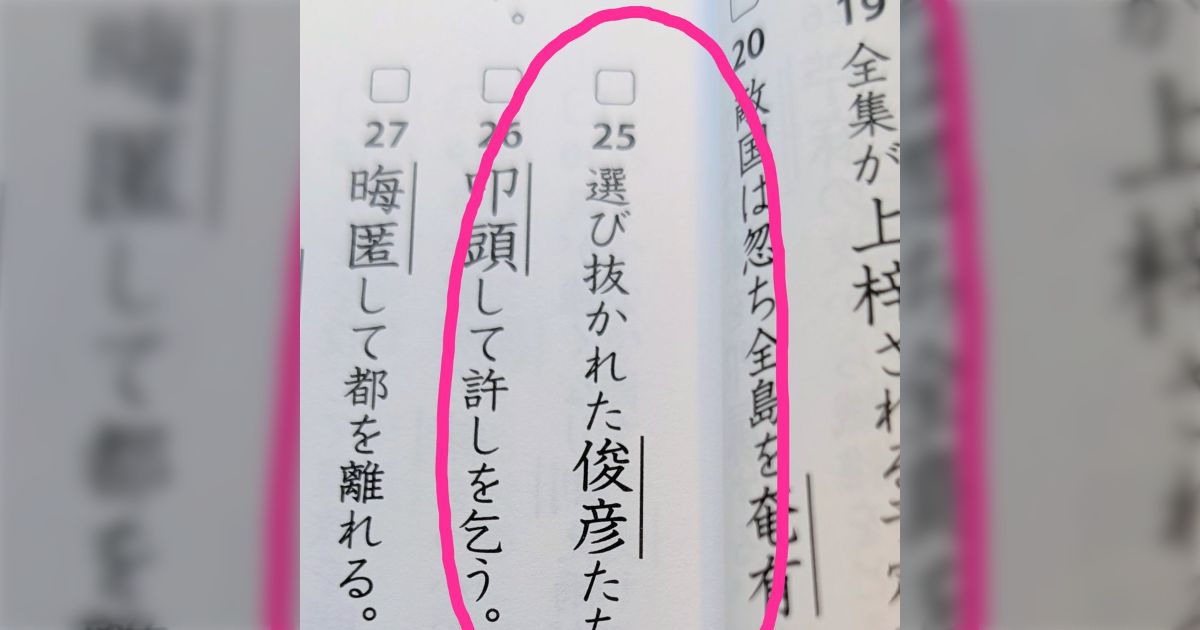 19 全集が上梓され
20 敵国は忽ち全島を奄有
25 選び抜かれた俊彦た
26 叩頭して許しを乞う。
27 晦匿して都を離れる。